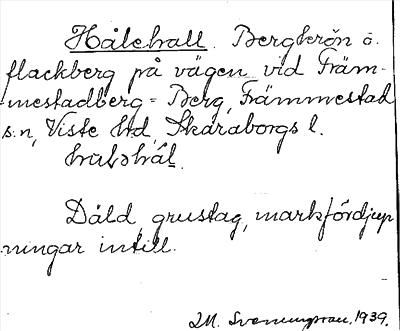 Hålehall. Bergkrön o.
flackberg på vägen vid Främ-
mestadberg = Berg, Främmestad
s:n, Viste hd, Skaraborgs l.
Dåld, grustag, markfördjup
ningar intill.
M. Svenungsson. 1939.